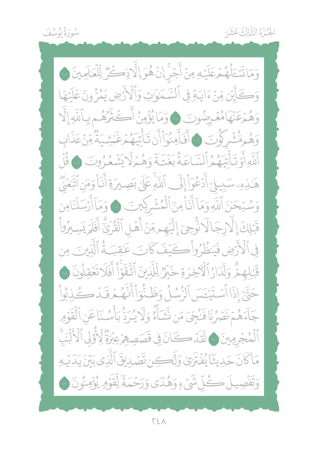 الجزء الثالث عشر
سورة يوسف
وَمَا تَسْـَٔلُهُمْ عَلَيْهِ مِنْ أَجْرٍ ۚ إِنْ هُوَ إِلَّا ذِكْرٌ لِّلْعَـٰلَمِينَ ١٠٤
وَكَأَيِّن مِّنْ ءَايَةٍ فِى ٱلسَّمَـٰوَٰتِ وَٱلْأَرْضِ يَمُرُّونَ عَلَيْهَا
وَهُمْ عَنْهَا مُعْرِضُونَ ١٠٥ وَمَا يُؤْمِنُ أَكْثَرُهُم بِٱللَّهِ إِلَّا
وَهُم مُّشْرِكُونَ ١٠٦ أَفَأَمِنُوٓا۟ أَن تَأْتِيَهُمْ غَـٰشِيَةٌ مِّنْ عَذَابِ
ٱللَّهِ أَوْ تَأْتِيَهُمُ ٱلسَّاعَةُ بَغْتَةً وَهُمْ لَا يَشْعُرُونَ ١٠٧ قُلْ
هَـٰذِهِۦ سَبِيلِىٓ أَدْعُوٓا۟ إِلَى ٱللَّهِ ۚ عَلَىٰ بَصِيرَةٍ أَنَا۠ وَمَنِ ٱتَّبَعَنِى ۖ
وَسُبْحَـٰنَ ٱللَّهِ وَمَآ أَنَا۠ مِنَ ٱلْمُشْرِكِينَ ١٠٨ وَمَآ أَرْسَلْنَا مِن
قَبْلِكَ إِلَّا رِجَالًا نُّوحِىٓ إِلَيْهِم مِّنْ أَهْلِ ٱلْقُرَىٰٓ ۗ أَفَلَمْ يَسِيرُوا۟
فِى ٱلْأَرْضِ فَيَنظُرُوا۟ كَيْفَ كَانَ عَـٰقِبَةُ ٱلَّذِينَ مِن
قَبْلِهِمْ ۗ وَلَدَارُ ٱلْـَٔاخِرَةِ خَيْرٌ لِّلَّذِينَ ٱتَّقَوْا۟ ۗ أَفَلَا تَعْقِلُونَ ١٠٩
حَتَّىٰٓ إِذَا ٱسْتَيْـَٔسَ ٱلرُّسُلُ وَظَنُّوٓا۟ أَنَّهُمْ قَدْ كُذِبُوا۟
جَآءَهُمْ نَصْرُنَا فَنُجِّىَ مَن نَّشَآءُ ۖ وَلَا يُرَدُّ بَأْسُنَا عَنِ ٱلْقَوْمِ
ٱلْمُجْرِمِينَ ١١٠ لَقَدْ كَانَ فِى قَصَصِهِمْ عِبْرَةٌ لِّأُو۟لِى ٱلْأَلْبَـٰبِ ۗ
مَا كَانَ حَدِيثًا يُفْتَرَىٰ وَلَـٰكِن تَصْدِيقَ ٱلَّذِى بَيْنَ يَدَيْهِ
وَتَفْصِيلَ كُلِّ شَىْءٍ وَهُدًى وَرَحْمَةً لِّقَوْمٍ يُؤْمِنُونَ ١١١
٢٤٨